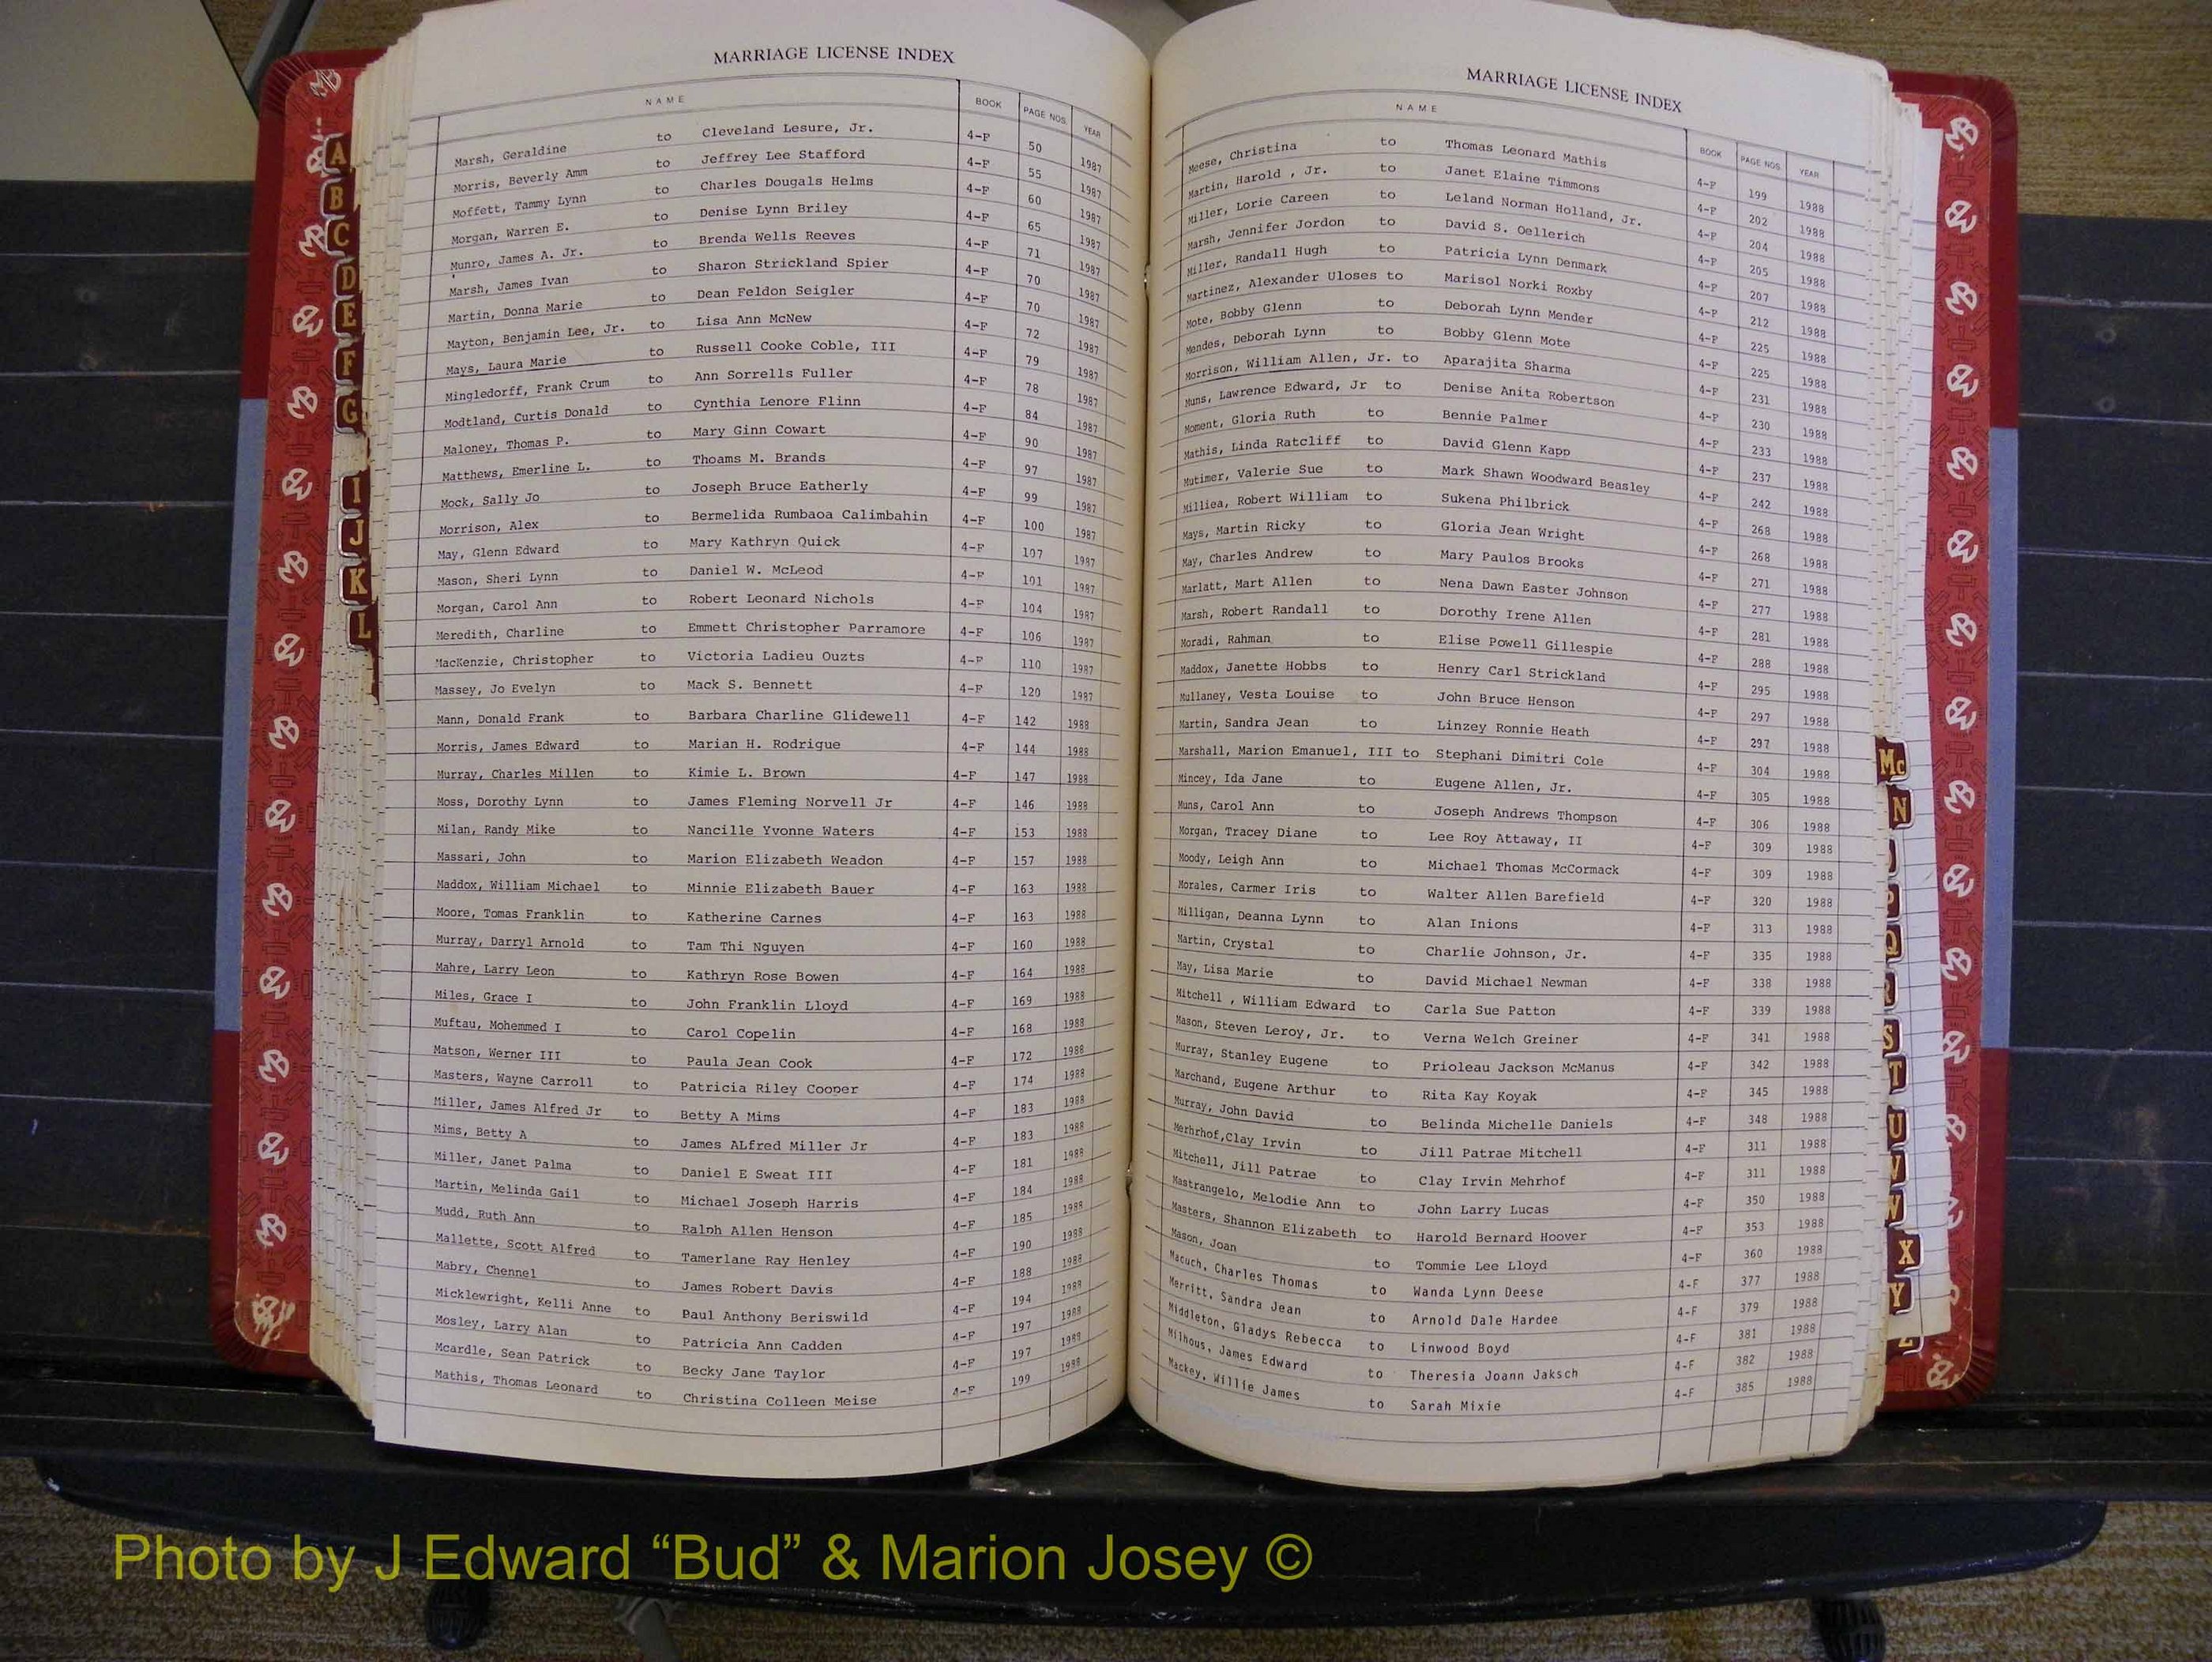 MARRIAGE LICENSE INDEX
NAME BOOK PAGE NOS. YEAR
Marsh, Geraldine to Cleveland Lesure, Jr. 4-F 50 1987
Morris, Beverly Amm to Jeffrey Lee Stafford 4-F 55 1987
Moffett, Tammy Lynn to Charles Dougals Helms 4-F 60 1987
Morgan, Warren E. to Denise Lynn Briley 4-F 65 1987
Munro, James A. Jr. to Brenda Wells Reeves 4-F 71 1987
Marsh, James Ivan to Sharon Strickland Spier 4-F 70 1987
Martin, Donna Marie to Dean Feldon Seigler 4-F 70 1987
Mayton, Benjamin Lee, Jr. to Lisa Ann McNew 4-F 72 1987
Mays, Laura Marie to Russell Cooke Coble, III 4-F 79 1987
Mingledorff, Frank Crum to Ann Sorrells Fuller 4-F 78 1987
Modtland, Curtis Donald to Cynthia Lenore Flinn 4-F 84 1987
Maloney, Thomas P. to Mary Ginn Cowart 4-F 90 1987
Matthews, Emerline L. to Thoams M. Brands 4-F 97 1987
Mock, Sally Jo to Joseph Bruce Eatherly 4-F 99 1987
Morrison, Alex to Bermelida Rumbaoa Calimbahin 4-F 100 1987
May, Glenn Edward to Mary Kathryn Quick 4-F 107 1987
Mason, Sheri Lynn to Daniel W. McLeod 4-F 101 1987
Morgan, Carol Ann to Robert Leonard Nichols 4-F 104 1987
Meredith, Charline to Emmett Christopher Parramore 4-F 106 1987
MacKenzie, Christopher to Victoria Ladieu Ouzts 4-F 110 1987
Massey, Jo Evelyn to Mack S. Bennett 4-F 120 1987
Mann, Donald Frank to Barbara Charline Glidewell 4-F 142 1988
Morris, James Edward to Marian H. Rodrigue 4-F 144 1988
Murray, Charles Millen to Kimie L. Brown 4-F 147 1988
Moss, Dorothy Lynn to James Fleming Norvell Jr 4-F 146 1988
Milan, Randy Mike to Nancille Yvonne Waters 4-F 153 1988
Massari, John to Marion Elizabeth Weadon 4-F 157 1988
Maddox, William Michael to Minnie Elizabeth Bauer 4-F 163 1988
Moore, Tomas Franklin to Katherine Carnes 4-F 163 1988
Murray, Darryl Arnold to Tam Thi Nguyen 4-F 160 1988
Mahre, Larry Leon to Kathryn Rose Bowen 4-F 164 1988
Miles, Grace I to John Franklin Lloyd 4-F 169 1988
Muftau, Mohemmed I to Carol Copelin 4-F 168 1988
Matson, Werner III to Paula Jean Cook 4-F 172 1988
Masters, Wayne Carroll to Patricia Riley Cooper 4-F 174 1988
Miller, James Alfred Jr to Betty A Mims 4-F 183 1988
Mims, Betty A to James ALfred Miller Jr 4-F 183 1988
Miller, Janet Palma to Daniel E Sweat III 4-F 181 1988
Martin, Melinda Gail to Michael Joseph Harris 4-F 184 1988
Mudd, Ruth Ann to Ralph Allen Henson 4-F 185 1988
Mallette, Scott Alfred to Tamerlane Ray Henley 4-F 190 1988
Mabry, Chennel to James Robert Davis 4-F 188 1988
Micklewright, Kelli Anne to Paul Anthony Beriswild 4-F 194 1988
Mosley, Larry Alan to Patricia Ann Cadden 4-F 197 1988
Mcardle, Sean Patrick to Becky Jane Taylor 4-F 197 1988
Mathis, Thomas Leonard to Christina Colleen Meise 4-F 199 1988
MARRIAGE LICENSE INDEX
NAME BOOK PAGE NOS. YEAR
Meese, Christina to Thomas Leonard Mathis 4-F 199 1988
Martin, Harold , Jr. to Janet Elaine Timmons 4-F 202 1988
Miller, Lorie Careen to Leland Norman Holland, Jr. 4-F 204 1988
Marsh, Jennifer Jordon to David S. Oellerich 4-F 205 1988
Miller, Randall Hugh to Patricia Lynn Denmark 4-F 207 1988
Martinez, Alexander Uloses to Marisol Norki Roxby 4-F 212 1988
Mote, Bobby Glenn to Deborah Lynn Mender 4-F 225 1988
Mendes, Deborah Lynn to Bobby Glenn Mote 4-F 225 1988
Morrison, William Allen, Jr. to Aparajita Sharma 4-F 231 1988
Muns, Lawrence Edward, Jr to Denise Anita Robertson 4-F 230 1988
Moment, Gloria Ruth to Bennie Palmer 4-F 233 1988
Mathis, Linda Ratcliff to David Glenn Kapp 4-F 237 1988
Mutimer, Valerie Sue to Mark Shawn Woodward Beasley 4-F 242 1988
Milliea, Robert William to Sukena Philbrick 4-F 268 1988
Mays, Martin Ricky to Gloria Jean Wright 4-F 268 1988
May, Charles Andrew to Mary Paulos Brooks 4-F 271 1988
Marlatt, Mart Allen to Nena Dawn Easter Johnson 4-F 277 1988
Marsh, Robert Randall to Dorothy Irene Allen 4-F 281 1988
Moradi, Rahman to Elise Powell Gillespie 4-F 288 1988
Maddox, Janette Hobbs to Henry Carl Strickland 4-F 295 1988
Mullaney, Vesta Louise to John Bruce Henson 4-F 297 1988
Martin, Sandra Jean to Linzey Ronnie Heath 4-F 297 1988
Marshall, Marion Emanuel, III to Stephani Dimitri Cole 4-F 304 1988
Mincey, Ida Jane to Eugene Allen, Jr. 4-F 305 1988
Muns, Carol Ann to Joseph Andrews Thompson 4-F 306 1988
Morgan, Tracey Diane to Lee Roy Attaway, II 4-F 309 1988
Moody, Leigh Ann to Michael Thomas McCormack 4-F 309 1988
Morales, Carmer Iris to Walter Allen Barefield 4-F 320 1988
Milligan, Deanna Lynn to Alan Inions 4-F 313 1988
Martin, Crystal to Charlie Johnson, Jr. 4-F 335 1988
May, Lisa Marie to David Michael Newman 4-F 338 1988
Mitchell , William Edward to Carla Sue Patton 4-F 339 1988
Mason, Steven Leroy, Jr. to Verna Welch Greiner 4-F 341 1988
Murray, Stanley Eugene to Prioleau Jackson McManus 4-F 342 1988
Marchand, Eugene Arthur to Rita Kay Koyak 4-F 345 1988
Murray, John David to Belinda Michelle Daniels 4-F 348 1988
Merhrhof,Clay Irvin to Jill Patrae Mitchell 4-F 311 1988
Mitchell, Jill Patrae to Clay Irvin Mehrhof 4-F 311 1988
Mastrangelo, Melodie Ann to John Larry Lucas 4-F 350 1988
Masters, Shannon Elizabeth to Harold Bernard Hoover 4-F 353 1988
Mason, Joan to Tommie Lee Lloyd 4-F 360 1988
Macuch, Charles Thomas to Wanda Lynn Deese 4-F 377 1988
Merritt, Sandra Jean to Arnold Dale Hardee 4-F 379 1988
Middleton, Gladys Rebecca to Linwood Boyd 4-F 381 1988
Milhous, James Edward to Theresia Joann Jaksch 4-F 382 1988
Mackey, Willie James to Sarah Mixie 4-F 385 1988
A
B
C
D
E
F
G
I
J
K
L
Mc
N
P
Q
S
T
U
V
W
X
Y
Z
Photo by J Edward “Bud” & Marion Josey ©